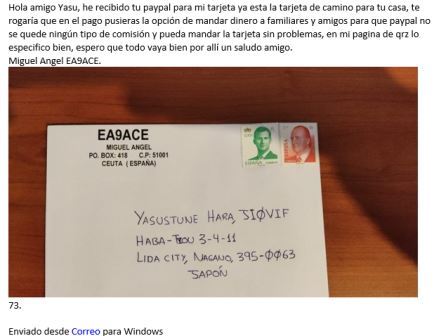 Hola amigo Yasu, he recibido tu paypal para mi tarjeta ya esta la tarjeta de camino para tu casa, te
rogaría que en el pago pusieras la opción de mandar dinero a familiares y amigos para que paypal no
se quede ningún tipo de comisión y pueda mandar la tarjeta sin problemas, en mi pagina de qrz lo
especifico bien, espero que todo vaya bien por allí un saludo amigo.
Miguel Angel EA9ACE.
EA9ACE
MIGUEL ANGEL
PO. BOX: 418 C.P: 51001
CEUTA ( ESPAÑA)
YASUSTUNE HARA, JIØVIF
HABA- 3-4-11
LIDA CITY, NAGANO, 395-ØØ63
JAPÓN
73.
Enviado desde Correo para Windows